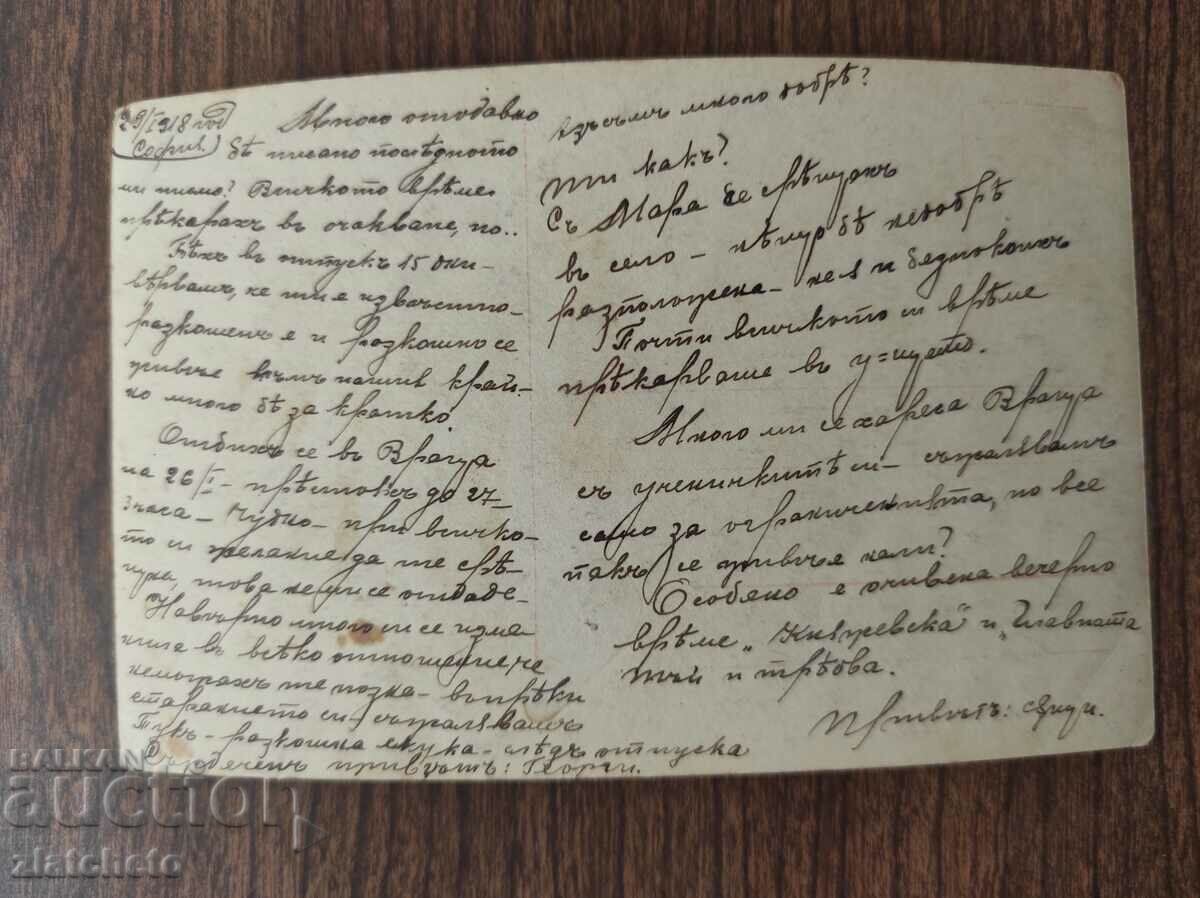 29/I 918 год
София.
Много отодавно
бѣ писано последното
ми писмо? Всичкото врѣме
прѣкарахъ въ очакване, но..
Бѣхъ въ отпускъ 15 дни-
вѣрвамъ, че ти е извѣстно-
разкошенъ е и разкошно се
живѣе къмъ нашия край-
но много бѣ за кратко.
Отбихъ се въ Враца
на 26/I - прѣстояхъ до 27-
3 часа - Чудно - при всичко-
то си желание да те срѣ-
щна, това не ми се отдаде-
Навѣрно много си се изме
нила въ всѣко отношение, че
неможахъ те позна - въпрѣки
старанието си - съжалявамъ
Тукъ - разкошна скука - слѣдъ отпуска
Сърдеченъ привѣтъ: Георги.
Азъ съмъ много добрѣ?
Ти какъ?
Съ Мара се срѣщнахъ
въ село - нѣщо бѣ недобрѣ
разположена - нея и безпокоихъ
Почти всичкото си врѣме
прѣкарваше въ у=щето.
Много ми се хареса Враца
съ ученичкитѣ си - съжалявамъ
само за ограниченията, но все
пакъ се живѣе нали?
Особено е оживена вечерно
врѣме "Княжевска" и "Главната"
тъй и трѣбва.
Привѣтъ: същи.
BALKAN
auction
zlatcheto